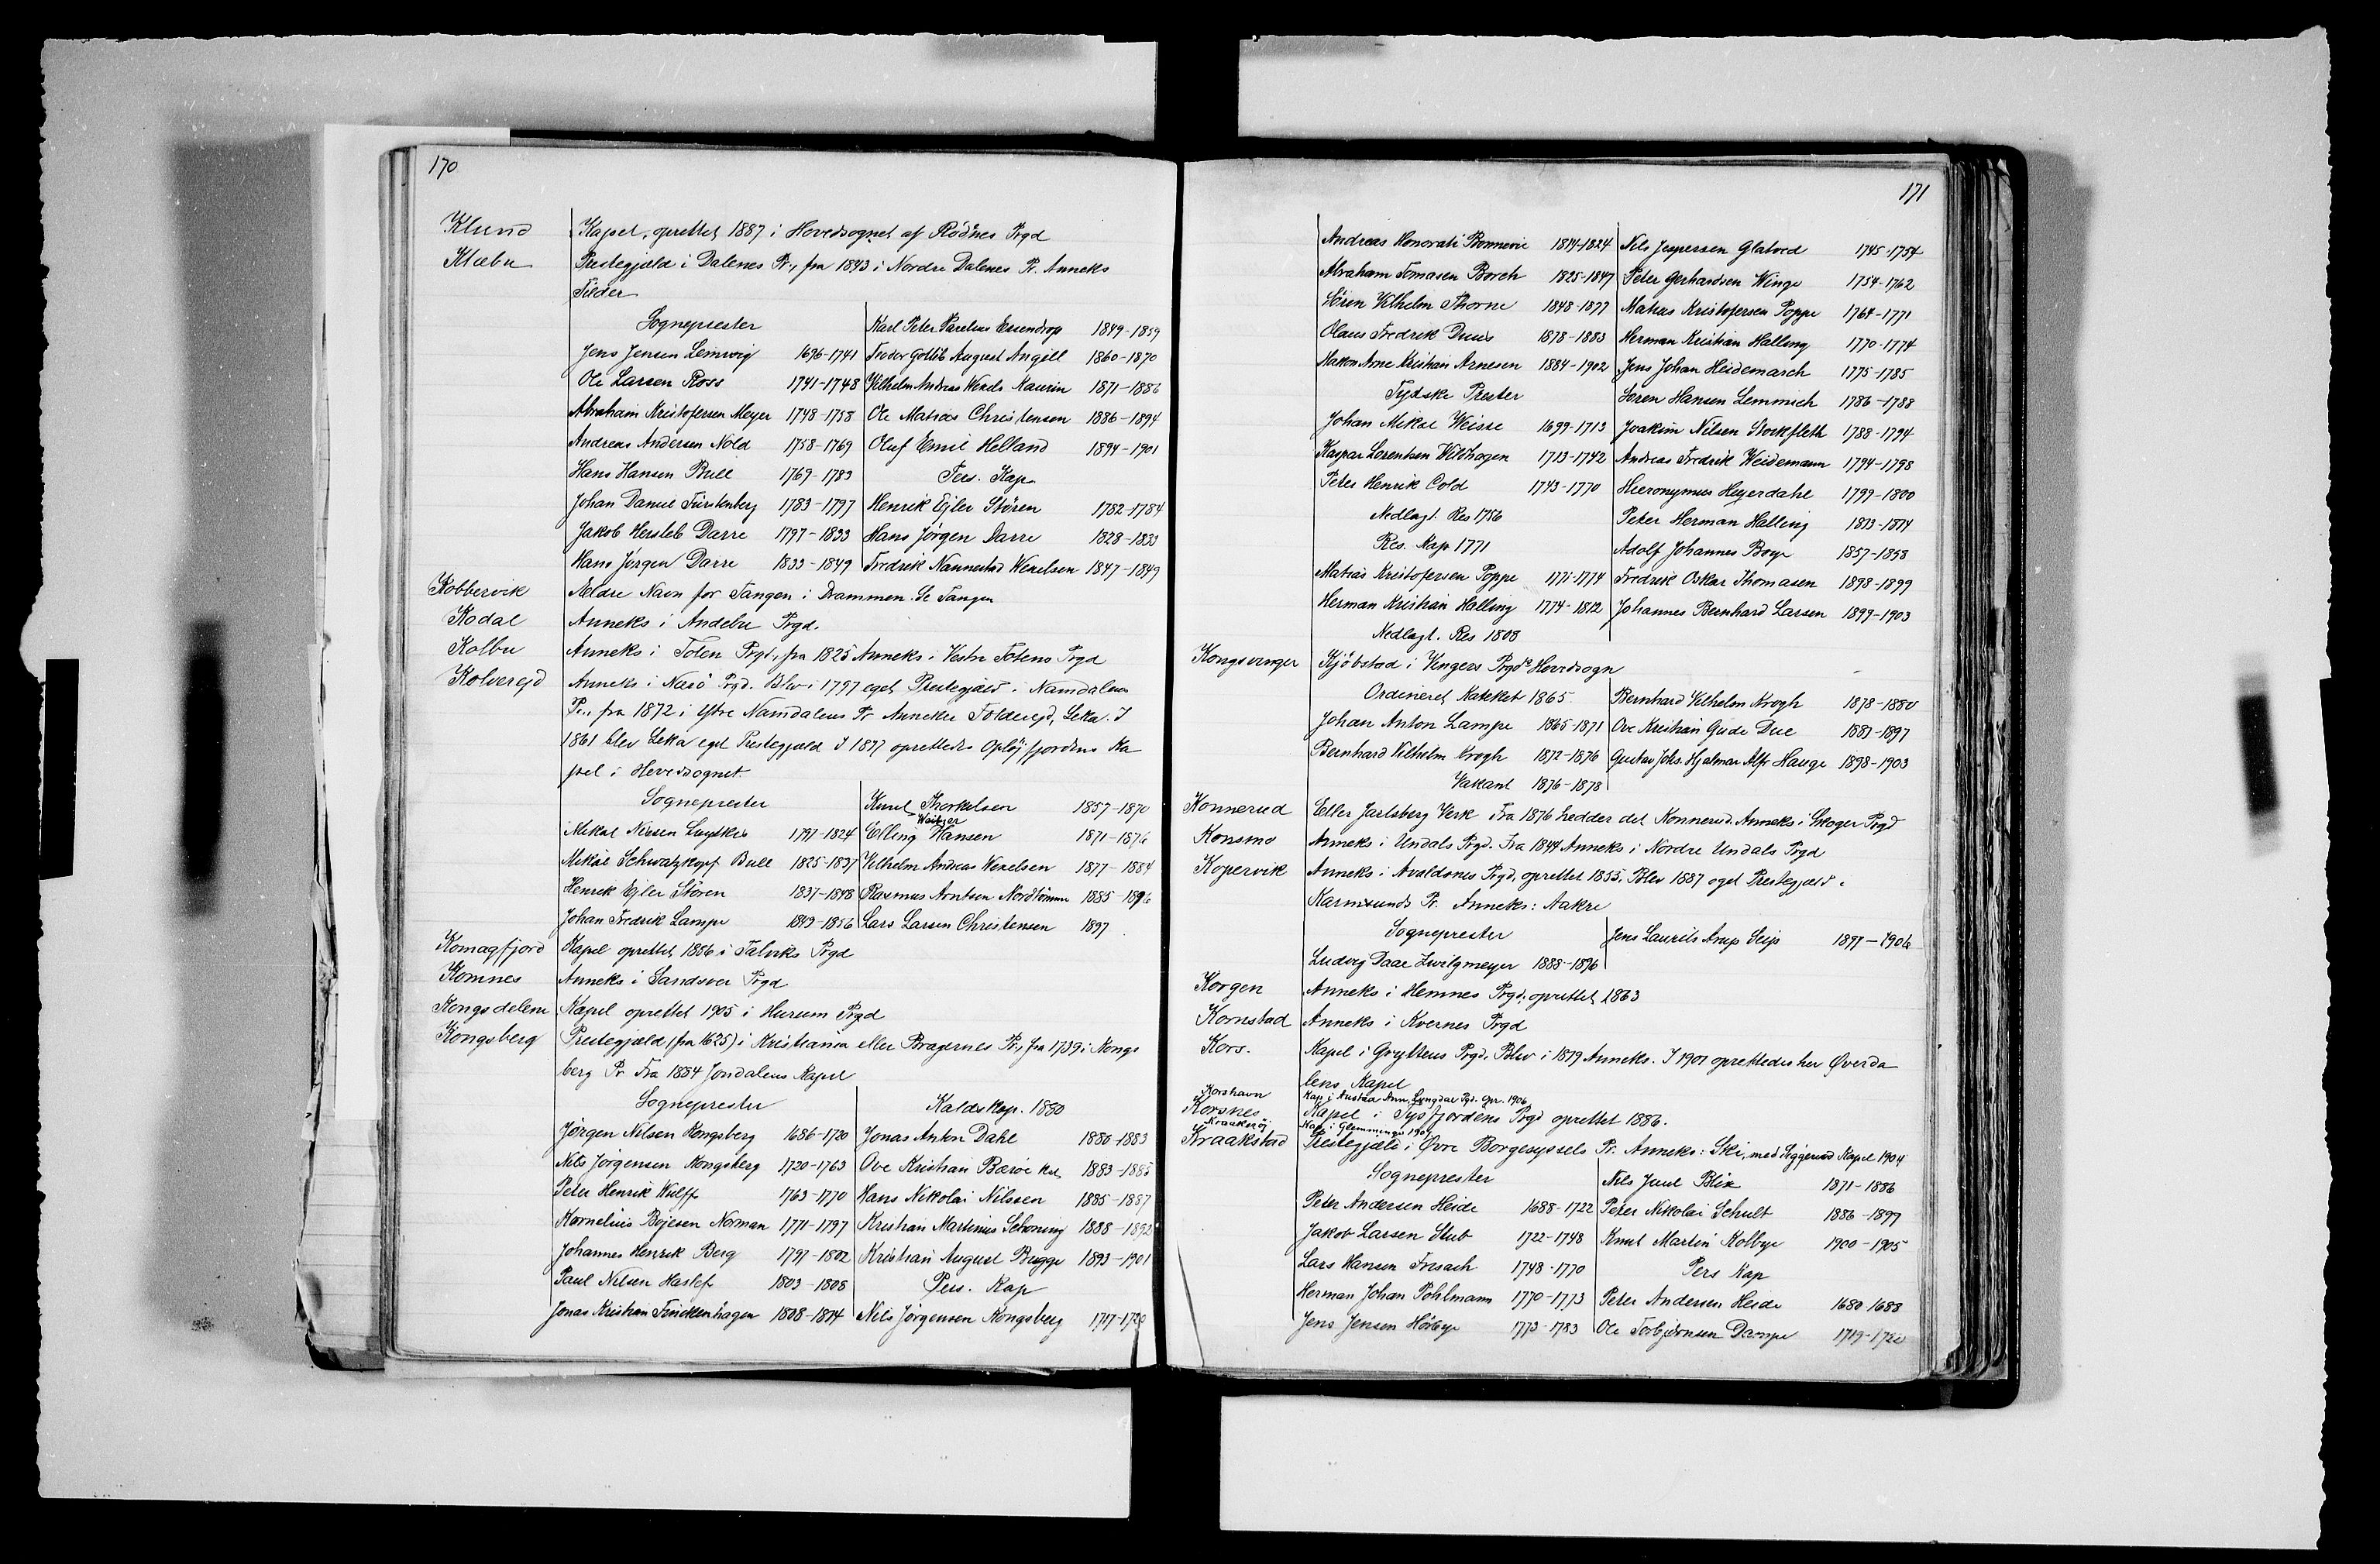 170
Klund Kapel, oprettet 1887 i Hovedsognet af Rödnes Prgd
Klæbu Prestegjæld i Dalenes Pr., fra 1843 i Nordre Dalenes Pr. Anneks
Tilder
Sogneprester
Jens Jensen Lemvig 1696-1741
Ole Larsen Ross 1741-1748
Abraham Kristofersen Meyer 1748-1758
Andreas Andersen Nold 1758-1769
Hans Hansen Bull 1769-1783
Johan Daniel Fürstenberg 1783-1797
Jakob Hersleb Darre 1797-1833
Hans Jörgen Darre 1833-1849
Karl Peter Parelius Essendrop 1849-1859
Teodor Gottlib August Angell 1860-1870
Vilhelm Andreas Wexels Kaurin 1871-1886
Ole Matias Christensen 1886-1894
Oluf Emil Helland 1894-1901
Pers. Kap.
Henrik Ejler Stören 1782-1784
Hans Jörgen Darre 1828-1833
Fredrik Nannestad Wexelsen 1847-1849
Kobbervik Ældre Navn for Tangen i Drammen. Se Tangen
Kodal Anneks i Andebu Prgd.
Kolbu Anneks i Toten Prgd., fra 1825 Anneks i Vestre Totens Prgd
Kolverejd Anneks i Nærö Prgd. Blev i 1797 eget Prestegjæld i Namdalens
Pr., fra 1872 i Ytre Namdalens Pr Annekser Folderejd, Leka. I
1861 blev Leka eget Prestegjæld I 1877 oprettedes Oplöjfjordens Ka
pel i Hovedsognet
Sogneprester
Mikal Nissen 1797-1824
Mikael Schwatzkopf Bull 1825-1837
Henrik Ejler Stören 1837-1848
Johan Fredrik Lampe 1849-1856
Knud Thorkelsen 1857-1870
Elling Weitzer Hansen 1871-1876
Vilhelm Andreas Wexelsen 1877-1884
Rasmus Arntsen Nordtömme 1885-1896
Lars Larsen Christensen 1897
Komagfjord Kapel oprettet 1886 i Talviks Prgd
Komnes Anneks i Sandsver Prgd
Kongsdelene Kapel oprettet 1905 i Hurum Prgd
Kongsberg Prestegjæld (fra 1625) i Kristiania eller Bragernes Pr., fra 1739 i Kongs
berg Pr Fra 1884 Jondalens Kapel
Sogneprester
Jörgen Nilsen Kongsberg 1686-1720
Nils Jörgensen Kongsberg 1720-1763
Peter Henrik Wulff 1763-1770
Kornelius Bojesen Norman 1771-1797
Johannes Henrik Berg 1797-1802
Paul Nilsen Haslef 1803-1808
Jonas Kristian Finckenhagen 1808-1814
Kaldskap. 1880
Jonas Anton Dahl 1880-1883
Ove Kristian Baröe 1883-1885
Hans Nikolai Nilssen 1885-1887
Kristian Martinius Schöning 1888-1892
Kristian August Bugge 1893-1901
Pers. Kap
Nils Jörgensen Kongsberg 1717-1720
171
Andreas Honorati Bonnevie 1814-1824
Abraham Tomasen Borch 1825-1847
Sören Vilhelm Thorne 1848-1877
Olaus Fredrik Duus 1878-1883
Hakon Arne Kristian Arnesen 1884-1902
Tydske Prester
Johan Mikal Weisse 1699-1713
Kaspar Lorentsen Wildhagen 1713-1742
Peter Henrik Cold 1743-1770
Nedlagt. Res 1756
Res. Kap 1771
Matias Kristofersen Poppe 1771-1774
Herman Kristian Halling 1774-1812
Nedlagt. Res 1808
Nils Jespersen Glatved 1745-1754
Peter Gerhardsen Winge 1754-1762
Matias Kristofersen Poppe 1764-1771
Herman Kristian Halling 1770-1774
Jens Johan Heidemarch 1775-1785
Sören Hansen Lemmich 1786-1788
Joakim Nilsen Stockfleth 1788-1794
Andreas Fredrik Weidemann 1794-1798
Hieronymus Heyerdahl 1799-1800
Peter Herman Halling 1813-1814
Adolf Johannes Boye 1857-1858
Fredrik Oskar Thomasen 1898-1899
Johannes Bernhard Larsen 1899-1903
Kongsvinger Kjöbstad i Vingers Prgds Hovedsogn
Ordineret Kateket 1865
Johan Anton Lampe 1865-1871
Bernhard Vilhelm Krogh 1872-1876
Vakant 1876-1878
Bernhard Vilhelm Krogh 1878-1880
Ove Kristian Gude Due 1881-1897
Gustav Johs. Hjalmar Alfr Hauge 1898-1903
Konnerud Eller Jarlsberg Verk Fra 1876 hedder det Konnerud. Anneks i Skoger Prgd
Konsmo Anneks i Undals Prgd. Fra 1844 Anneks i Nordre Undals Prgd
Kopervik Anneks i Avaldsnes Prgd, oprettet 1855. Blev 1887 eget Prestegjæld i
Karmsunds Pr. Anneks: Aakre
Sogneprester
Ludvig Daae Zwilgmeyer 1888-1896
Jens Laurits Arup Seip 1897-1906
Korgen Anneks i Hemnes Prgd, oprettet 1863
Kornstad Anneks i Kvernes Prgd
Kors. Kapel i Gryttens Prgd. Blev i 1879 Anneks. I 1901 oprettedes her Överda
lens Kapel
Korshavn Kap. i Austad Ann. Lyngdal Pgd. Opr. 1906
Korsnes Kapel i Tysfjordens Prgd oprettet 1886.
Kraakeröy Kap. i Glemminge 1907
Kraakstad Prestegjæld i Övre Borgesyssels Pr. Anneks: Ski, med Siggerud Kapel 1904
Sogneprester
Peter Andersen Heide 1688-1722
Jakob Larsen Stub 1722-1748
Lars Hansen Fresach 1748-1770
Herman Johan Pohlmann 1770-1773
Jens Jensen Hörbye 1773-1783
Nils Juul Blix 1871-1886
Peter Nikolai Schult 1886-1899
Knut Martin Kolbye 1900-1905
Pers Kap
Peter Andersen Heide 1680-1688
Ole Torbjörnsen Dampe 1719-1720